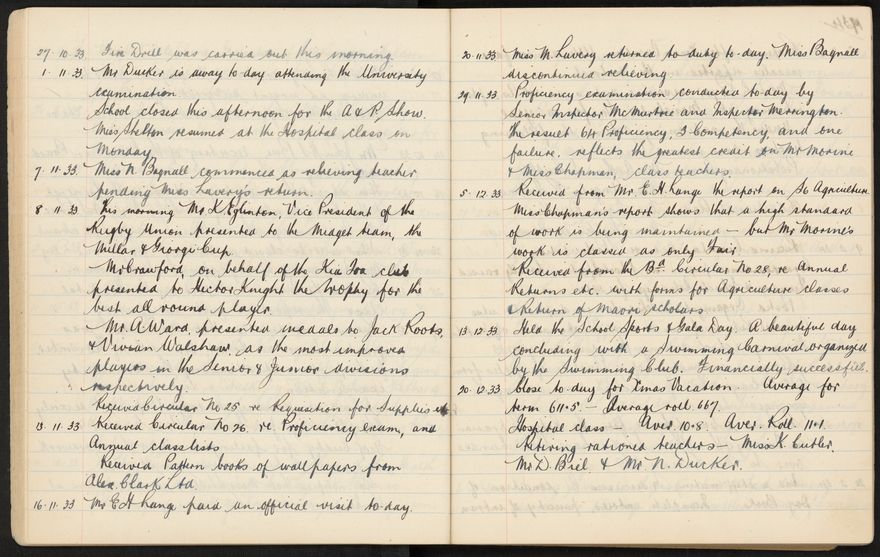 27. 10. 33 Fire Drill was carried out this morning.
1. 11. 33 Mr Ducker is away to day attending the University
examination.
School closed this afternoon for the A & P. Show.
Miss Shelton resumed at the Hospital class on
Monday.
7. 11. 33. Miss N. Bagnall commenced as relieving teacher
pending Miss Lavery's return.
8 11 33 This morning Mr K Eglinton, Vice President of the
Rugby Union presented to the Midget team, the
Millar & Giorgi Cup.
Mr Crawford, on behalf of the Kia Ora club
presented to Hector Knight the trophy for the
best all round player.
Mr. A Ward presented medals to Jack Roots,
& Vivian Walshaw, as the most improved
players in the Senior & Junior divisions
respectively.
Received Circular No 25 re Requisition for Supplies etc
13 11 33 Received Circular No 26. re. Proficiency exam, and
Annual class lists
Received Pattern books of wallpapers from
Alex. Clark Ltd
16. 11. 33 Mr E H Lange paid an official visit to-day.
20 11 33 Miss M. Lavery returned to duty to-day. Miss Bagnall
discontinued relieving
29 11. 33 Proficiency examination conducted to-day by
Senior Inspector McMurtrie and Inspector Merrington.
The result 64 Proficiency, 3 Competency, and one
failure, reflects the greatest credit on Mr Morine
& Miss Chapman, class teachers.
5. 12 33 Received from Mr. E. H Lange the report on S6 Agriculture
Miss Chapman's report shows that a high standard
of work is being maintained – but Mr Morine's
work is classed as only Fair.
Received from the Bd. Circular No 28, re Annual
Returns etc. with forms for Agriculture classes
& Return of Maori scholars
13. 12 33 Held the School Sports & Gala Day. A beautiful day
concluding with a Swimming Carnival organized
by the Swimming Club. Financially successful.
20. 12. 33 Close to-day for Xmas Vacation. Average for
term 611.5. – Average roll 667.
Hospital class – Aver. 10.8. Aver. Roll. 11.1
Retiring rationed teachers – Miss K. Cutler.
Mr D. Biel & Mr N. Ducker.